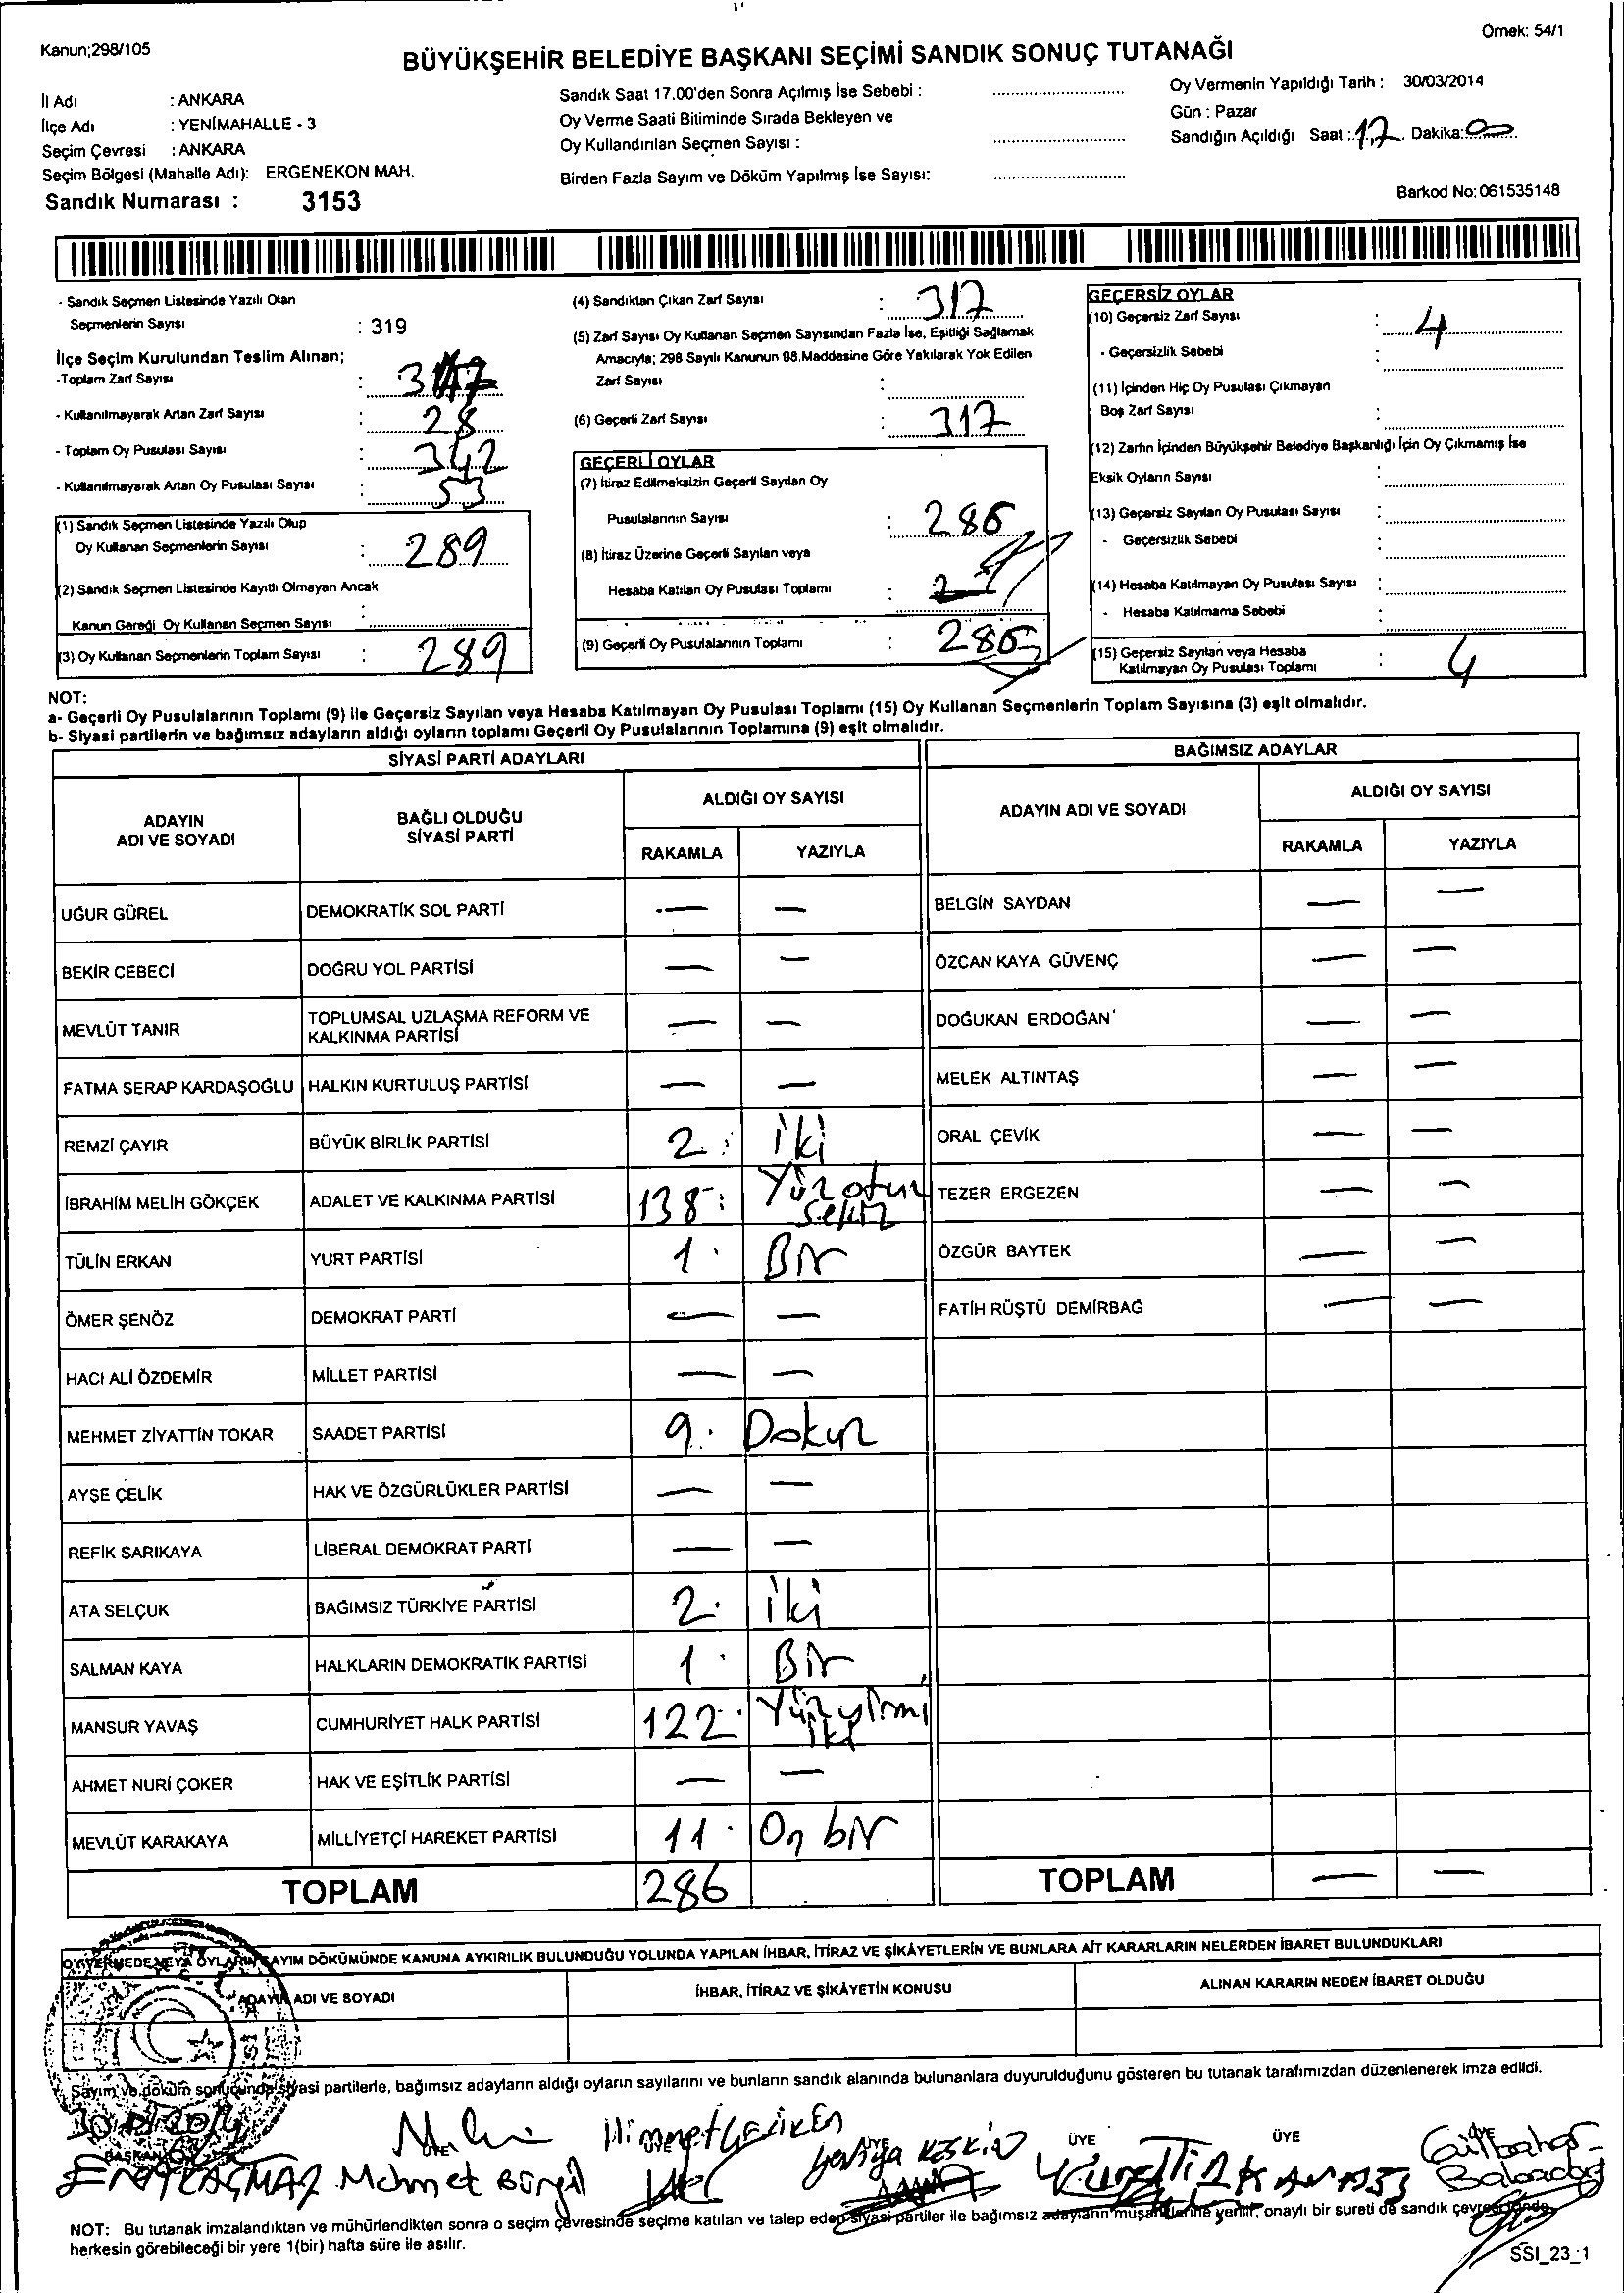 Kanun;298/105
Örnek: 54/1
BÜYÜKŞEHİR BELEDİYE BAŞKANI SEÇİMİ SANDIK SONUÇ TUTANAĞI
İl Adı : ANKARA
İlçe Adı : YENİMAHALLE - 3
Seçim Çevresi : ANKARA
Seçim Bölgesi (Mahalle Adı): ERGENEKON MAH.
Sandık Numarası : 3153
Sandık Saat 17.00'den Sonra Açılmış İse Sebebi :
Oy Verme Saati Bitiminde Sırada Bekleyen ve
Oy Kullandırılan Seçmen Sayısı :
Birden Fazla Sayım ve Döküm Yapılmış İse Sayısı:
Oy Vermenin Yapıldığı Tarih : 30/03/2014
Gün : Pazar
Sandığın Açıldığı Saat : 17 Dakika: 00
Barkod No: 061535148
- Sandık Seçmen Listesinde Yazılı Olan
Seçmenlerin Sayısı : 319
İlçe Seçim Kurulundan Teslim Alınan;
-Toplam Zarf Sayısı :
- Kullanılmayarak Artan Zarf Sayısı : 28
- Toplam Oy Pusulası Sayısı : 342
- Kullanılmayarak Artan Oy Pusulası Sayısı : 53
(1) Sandık Seçmen Listesinde Yazılı Olup
Oy Kullanan Seçmenlerin Sayısı : 289
(2) Sandık Seçmen Listesinde Kayıtlı Olmayan Ancak
Kanun Gereği Oy Kullanan Seçmen Sayısı :
(3) Oy Kullanan Seçmenlerin Toplam Sayısı : 289
(4) Sandıktan Çıkan Zarf Sayısı : 317
(5) Zarf Sayısı Oy Kullanan Seçmen Sayısından Fazla İse, Eşitliği Sağlamak
Amacıyla; 298 Sayılı Kanunun 98.Maddesine Göre Yakılarak Yok Edilen
Zarf Sayısı :
(6) Geçerli Zarf Sayısı : 317
GEÇERLİ OYLAR
(7) İtiraz Edilmeksizin Geçerli Sayılan Oy
Pusulalarının Sayısı : 286
(8) İtiraz Üzerine Geçerli Sayılan veya
Hesaba Katılan Oy Pusulası Toplamı :
(9) Geçerli Oy Pusulalarının Toplamı : 285
GEÇERSİZ OYLAR
(10) Geçersiz Zarf Sayısı : 4
- Geçersizlik Sebebi :
(11) İçinden Hiç Oy Pusulası Çıkmayan
Boş Zarf Sayısı :
(12) Zarfın İçinden Büyükşehir Belediye Başkanlığı İçin Oy Çıkmamış İse
Eksik Oyların Sayısı :
(13) Geçersiz Sayılan Oy Pusulası Sayısı :
- Geçersizlik Sebebi :
(14) Hesaba Katılmayan Oy Pusulası Sayısı :
- Hesaba Katılmama Sebebi :
(15) Geçersiz Sayılan veya Hesaba
Katılmayan Oy Pusulası Toplamı : 4
NOT:
a- Geçerli Oy Pusulalarının Toplamı (9) ile Geçersiz Sayılan veya Hesaba Katılmayan Oy Pusulası Toplamı (15) Oy Kullanan Seçmenlerin Toplam Sayısına (3) eşit olmalıdır.
b- Siyasi partilerin ve bağımsız adayların aldığı oyların toplamı Geçerli Oy Pusulalarının Toplamına (9) eşit olmalıdır.
SİYASİ PARTİ ADAYLARI
ADAYIN
ADI VE SOYADI
BAĞLI OLDUĞU
SİYASİ PARTİ
ALDIĞI OY SAYISI
RAKAMLA YAZIYLA
UĞUR GÜREL DEMOKRATİK SOL PARTİ — —
BEKİR CEBECİ DOĞRU YOL PARTİSİ — —
MEVLÜT TANIR TOPLUMSAL UZLAŞMA REFORM VE
KALKINMA PARTİSİ — —
FATMA SERAP KARDAŞOĞLU HALKIN KURTULUŞ PARTİSİ — —
REMZİ ÇAYIR BÜYÜK BİRLİK PARTİSİ 2 iki
İBRAHİM MELİH GÖKÇEK ADALET VE KALKINMA PARTİSİ 138 Yüzotuz
sekiz
TÜLİN ERKAN YURT PARTİSİ 1 Bir
ÖMER ŞENÖZ DEMOKRAT PARTİ — —
HACI ALİ ÖZDEMİR MİLLET PARTİSİ — —
MEHMET ZİYATTİN TOKAR SAADET PARTİSİ 9 Dokuz
AYŞE ÇELİK HAK VE ÖZGÜRLÜKLER PARTİSİ — —
REFİK SARIKAYA LİBERAL DEMOKRAT PARTİ — —
ATA SELÇUK BAĞIMSIZ TÜRKİYE PARTİSİ 2 iki
SALMAN KAYA HALKLARIN DEMOKRATİK PARTİSİ 1 Bir
MANSUR YAVAŞ CUMHURİYET HALK PARTİSİ 122 Yüzyirmi
iki
AHMET NURİ ÇOKER HAK VE EŞİTLİK PARTİSİ — —
MEVLÜT KARAKAYA MİLLİYETÇİ HAREKET PARTİSİ 11 On bir
TOPLAM 286
BAĞIMSIZ ADAYLAR
ADAYIN ADI VE SOYADI
ALDIĞI OY SAYISI
RAKAMLA YAZIYLA
BELGİN SAYDAN — —
ÖZCAN KAYA GÜVENÇ — —
DOĞUKAN ERDOĞAN — —
MELEK ALTINTAŞ — —
ORAL ÇEVİK — —
TEZER ERGEZEN — —
ÖZGÜR BAYTEK — —
FATİH RÜŞTÜ DEMİRBAĞ — —
TOPLAM — —
OY VERMEDE VEYA OYLARIN SAYIM DÖKÜMÜNDE KANUNA AYKIRILIK BULUNDUĞU YOLUNDA YAPILAN İHBAR, İTİRAZ VE ŞİKÂYETLERİN VE BUNLARA AİT KARARLARIN NELERDEN İBARET BULUNDUKLARI
ADAYIN ADI VE SOYADI
İHBAR, İTİRAZ VE ŞİKÂYETİN KONUSU
ALINAN KARARIN NEDEN İBARET OLDUĞU
Sayım ve döküm sonucunda siyasi partilerle, bağımsız adayların aldığı oyların sayılarını ve bunların sandık alanında bulunanlara duyurulduğunu gösteren bu tutanak tarafımızdan düzenlenerek imza edildi.
BAŞKAN ÜYE ÜYE ÜYE ÜYE ÜYE ÜYE
Mehmet
NOT: Bu tutanak imzalandıktan ve mühürlendikten sonra o seçim çevresinde seçime katılan ve talep eden siyasi partiler ile bağımsız adayların müşahitlerine verilir, onaylı bir sureti de sandık çevresinde
herkesin görebileceği bir yere 1(bir) hafta süre ile asılır.
SSI_23_1